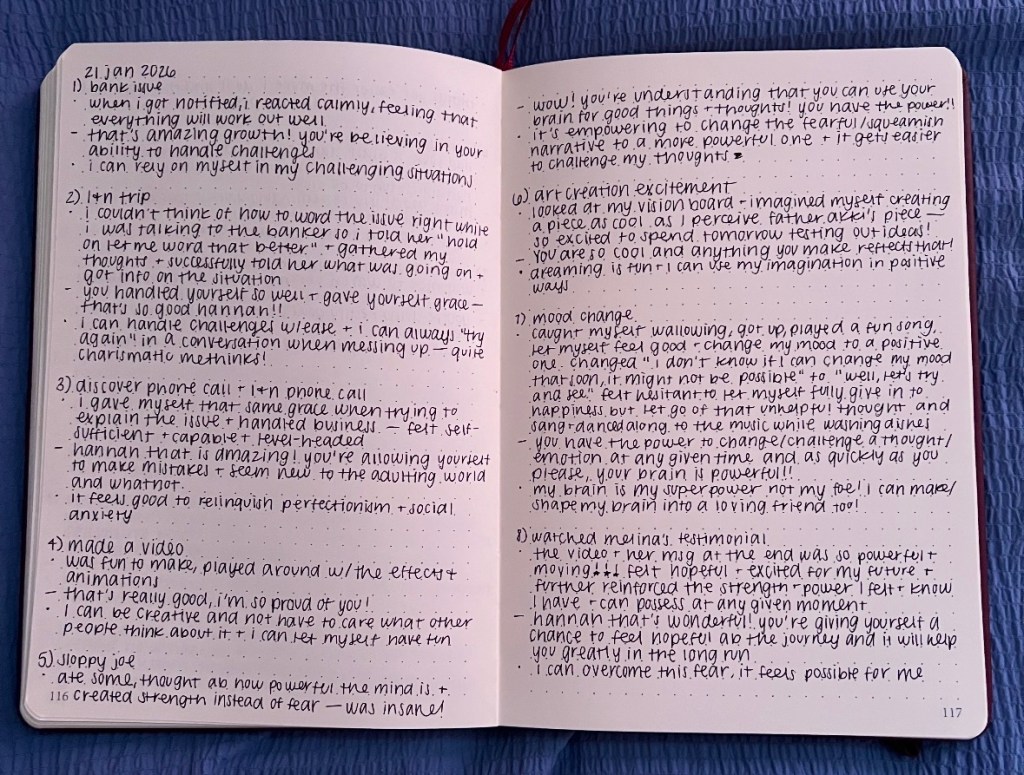 21 jan 2026
1) bank issue
· when i got notified, i reacted calmly, feeling that
everything will work out well.
- that's amazing growth! you're believing in your
ability to handle challenges
· i can rely on myself in my challenging situations
2) l+n trip
· i couldn't think of how to word the issue right while
i was talking to the banker so i told her "hold
on let me word that better" + gathered my
thoughts + successfully told her what was going on +
got into on the situation
- you handled yourself so well + gave yourself grace —
that's so good hannah!!
· i can handle challenges w/ease + i can always "try
again" in a conversation when messing up — quite
charismatic methinks!
3) discover phone call + l+n phone call
· i gave myself that same grace when trying to
explain the issue + handled business — felt self-
sufficient + capable + level-headed
- hannah that is amazing! you're allowing yourself
to make mistakes + seem new to the adulting world
and whatnot
· it feels good to relinquish perfectionism + social
anxiety
4) made a video
· was fun to make, played around w/the effects +
animations
- that's really good, i'm so proud of you!
· I can be creative and not have to care what other
people think about it + i can let myself have fun
5) sloppy joe
· ate some, thought ab how powerful the mind is +
created strength instead of fear — was insane!
116
- wow! you're understanding that you can use your
brain for good things + thoughts! you have the power!!
· it's empowering to change the fearful/squeamish
narrative to a more powerful one + it gets easier
to challenge my thoughts
6) art creation excitement
· looked at my vision board + imagined myself creating
a piece as cool as I perceive father akki's piece —
so excited to spend tomorrow testing out ideas!
- you are so cool and anything you make reflects that!
· dreaming is fun + I can use my imagination in positive
ways
7) mood change
· caught myself wallowing, got up, played a fun song,
let myself feel good + change my mood to a positive
one. changed "i don't know if I can change my mood
that soon, it might not be possible" to "well, let's try
and see" felt hesitant to let myself fully give in to
happiness but let go of that unhelpful thought and
sang + danced along to the music while washing dishes
- you have the power to change/challenge a thought/
emotion at any given time and as quickly as you
please, your brain is powerful!!
· my brain is my superpower not my foe! i can make/
shape my brain into a loving friend too!
8) watched melina's testimonial
· the video + her msg at the end was so powerful +
moving!!! felt hopeful + excited for my future +
further reinforced the strength + power I felt + know
I have + can possess at any given moment
- hannah that's wonderful! you're giving yourself a
chance to feel hopeful ab the journey and it will help
you greatly in the long run
· i can overcome this fear, it feels possible for me
117